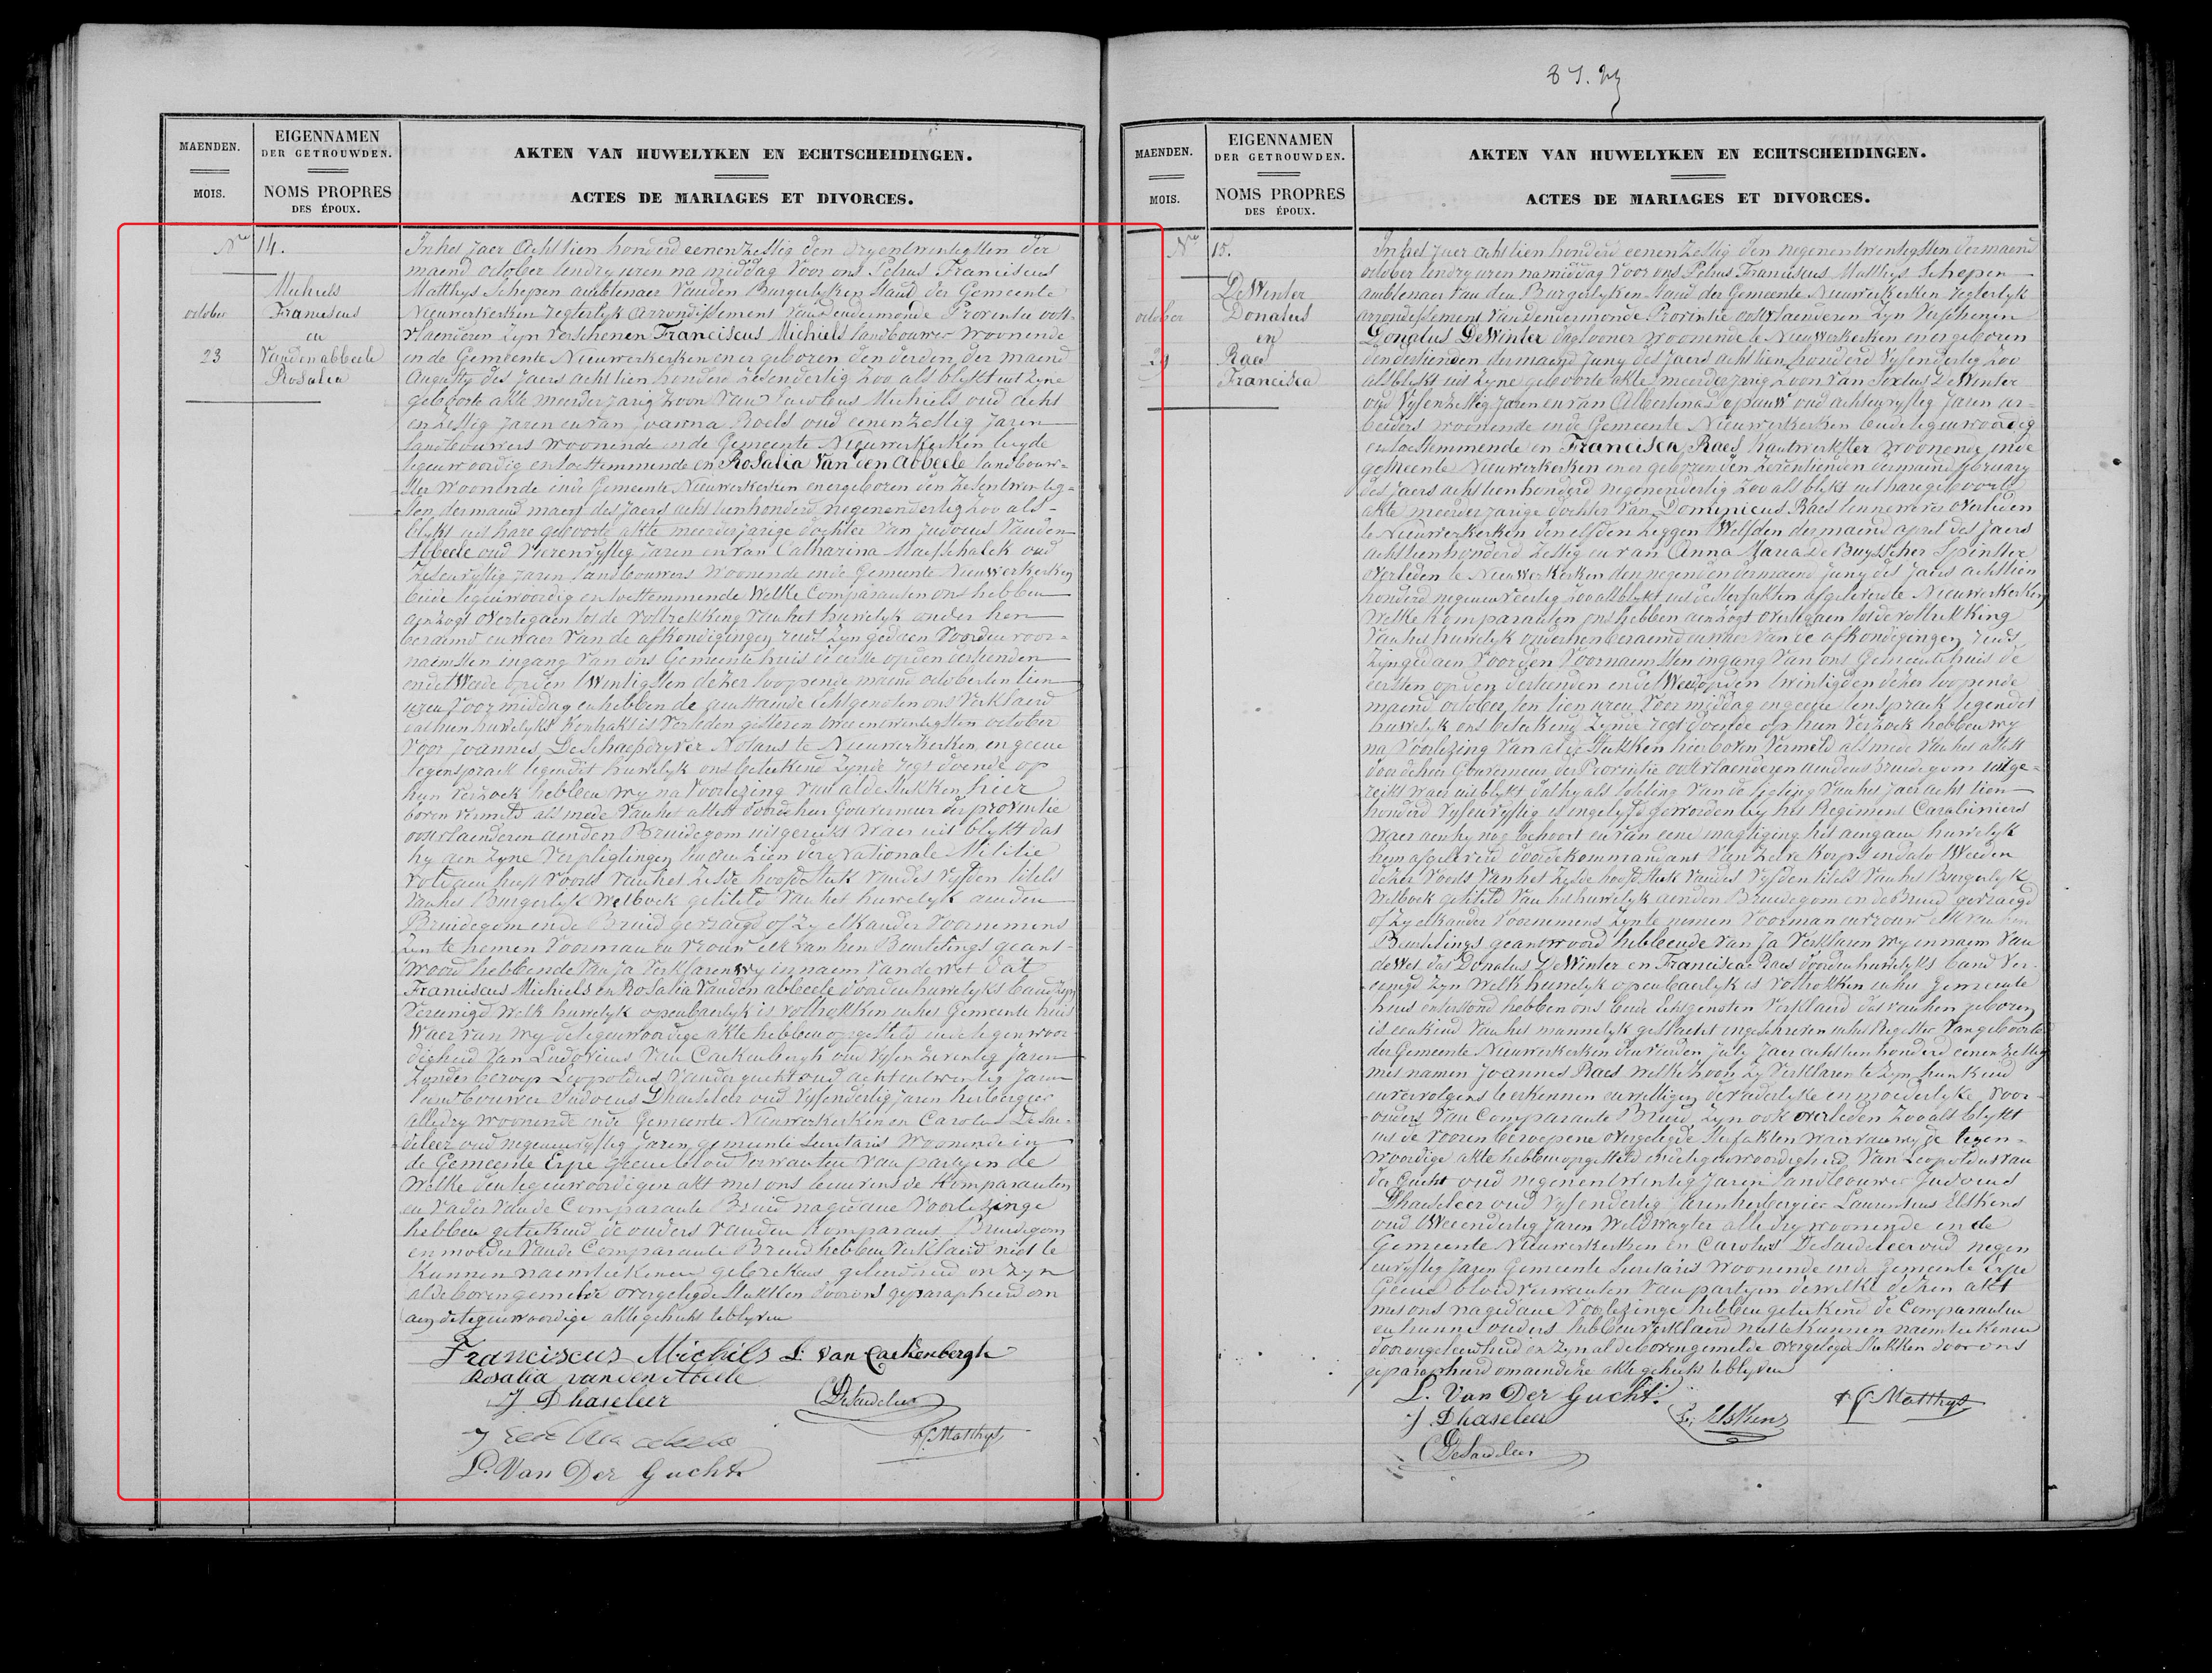 87.
MAENDEN.
MOIS.
EIGENNAMEN
DER GETROUWDEN.
NOMS PROPRES
DES ÉPOUX.
AKTEN VAN HUWELYKEN EN ECHTSCHEIDINGEN.
ACTES DE MARIAGES ET DIVORCES.
No 14.
Michiels
october Franciscus
en
23 Vanden abbeele
Rosalia
In het jaer Achttien honderd eenenzestig den dryentwintigsten der
maend october ten dry uren na middag voor ons Petrus Franciscus
Matthys Schepen ambtenaer vanden Burgerlyken Stand der Gemeente
Nieuwerkerken regterlyk arrondissement van Dendermonde Provintie oost-
vlaenderen zyn verschenen Franciscus Michiels landbouwer woonende
in de Gemeente Nieuwerkerken en er geboren den derden der maend
Augusty des jaers achttien honderd zesendertig zoo als blykt uit zyne
geboorte akte meerderjarig zoon van Jacobus Michiels oud acht
en zestig jaren en van Joanna Roels oud eenenzestig jaren
landbouwers woonende in de Gemeente Nieuwerkerken beyde
tegenwoordig en toestemmende en Rosalia Van den abbeele landbouw-
ster woonende in de Gemeente Nieuwerkerken en er geboren den zesentwintig-
sten der maend maert des jaers achttienhonderd negenendertig zoo als
blykt uit hare geboorte akte meerderjarige dochter van Judocus Vanden
Abbeele oud vierenvyftig jaren en van Catharina Maesschalck oud
zesenvyftig jaren landbouwers woonende in de Gemeente Nieuwerkerken
beide tegenwoordig en toestemmende Welke Comparanten ons hebben
aenzogt overtegaen tot de voltrekking van het huwelyk onder hen
beraemd en waer van de afkondigingen reeds zyn gedaen voor den voor-
naemsten ingang van ons Gemeente huis de eerste op den dertienden
en de tweede op den twintigsten dezer loopende maend october ten tien
uren voor middag en hebben de aenstaende Echtgenoten ons verklaerd
dat hun huwelyks kontrakt is verleden gisteren tweeentwintigsten october
voor Joannes De Schaepdryver Notaris te Nieuwerkerken, en geene
tegenspraek tegen dit huwelyk ons beteekend zynde regt doende op
hun verzoek hebben wy na voorlezing van al de stukken hier
boven vermeld als mede van het attest door den heer Gouverneur der provintie
oostvlaenderen aen den Bruidegom uitgereikt waer uit blykt dat
hy aen zyne verpligtingen ten dien der Nationale Militie
voldaen heeft voords van het zesde hoofdstuk van den vyfden titels
van het Burgerlyk Wetboek getiteld van het huwelyk aen den
Bruidegom en de Bruid gevraegd of zy elkander voornemens
zyn te nemen voor man en vrouw elk van hen Beurtelings geant-
woord hebbende van Ja verklaren wy in naem van de wet dat
Franciscus Michiels en Rosalia Vanden abbeele door den huwelyks band zyn
vereenigd welk huwelyk openbaerlyk is voltrokken in het Gemeente huis
Waer van wy de tegenwoordige akte hebben opgesteld in de tegenwoor
digheid van Ludovicus Van Caekenbergh oud vyfenzeventig jaren
zonder beroep Leopoldus Vander gucht oud achtentwintig jaren
landbouwer Judocus Dhaseleer oud vyfendertig jaren herbergier
alle dry woonende in de Gemeente Nieuwerkerken en Carolus De Sae-
deleer oud negenenvyftig jaren gemeente Secretaris woonende in
de Gemeente Erpe geene bloedverwanten van partyen de
Welke den tegenwoordigen akt met ons benevens de Komparanten
en vader van de Comparante Bruid na gedane voorlezinge
hebben geteekend de ouders van den Komparant Bruidegom
en moeder van de Comparante Bruid hebben verklaerd niet te
kunnen naemteekenen gebrekens geleerdheid en zyn
al de boven gemelde overgelegde stukken door ons geparapheerd om
aen de tegenwoordige akte gehecht te blyven
Franciscus Michils L. Van Caekenbergh
Rosalia vanden Abeele
J Dhaseleer CDeSaedeleer
J
PF Matthys
L. Van Der Gucht
MAENDEN.
MOIS.
EIGENNAMEN
DER GETROUWDEN.
NOMS PROPRES
DES ÉPOUX.
AKTEN VAN HUWELYKEN EN ECHTSCHEIDINGEN.
ACTES DE MARIAGES ET DIVORCES.
No 15.
De Winter
october Donatus
en
29 Raes
Francisca
In het jaer achttien honderd eenenzestig den negenentwintigsten der maend
october ten dry uren na middag voor ons Petrus Franciscus Matthys Schepen
ambtenaer van den Burgerlyken Stand der Gemeente Nieuwerkerken regterlyk
arrondissement van Dendermonde Provintie oostvlaenderen zyn verschenen
Donatus De Winter daglooner woonende te Nieuwerkerken en er geboren
den dertienden der maend Juny des jaers achttien honderd vyfendertig zoo
als blykt uit zyne geboorte akte meerderjarig zoon van Sextus De Winter
oud vyfenzestig jaren en van Albertina Depauw oud achtenvyftig jaren ar-
beiders woonende in de Gemeente Nieuwerkerken beide tegenwoordig
en toestemmende en Francisca Raes kantwerkster woonende in de
gemeente Nieuwerkerken en er geboren den zeventienden der maend february
des jaers achttienhonderd negenendertig zoo als blykt uit hare geboorte
akte meerderjarige dochter van Dominicus Raes linnewever overleden
te Nieuwerkerken den elfden zeggen twelfden der maend april des jaers
achttienhonderd zestig en van Anna Maria De Buysscher Spinster
overleden te Nieuwerkerken den negenden der maend Juny des jaers achttien
honderd negenenveertig zoo als blykt uit de sterfakten afgeleverd te Nieuwerkerken
Welke Komparanten ons hebben aenzogt overtegaen tot de voltrekking
van het huwelyk onder hen beraemd en waer van de afkondigingen reeds
zyn gedaen voor den voornaemsten ingang van ons Gemeente huis de
eersten op den dertienden en de tweede op den twintigsten dezer loopende
maend october ten tien uren voor middag en geene tenspraek tegen dit
huwelyk ons beteekend zynde regt doende op hun verzoek hebben wy
na voorlezing van al de stukken hier boven vermeld als mede van het attest
door de heer Gouverneur der Provintie oostvlaenderen aen den Bruidegom uitge-
reikt waer uit blykt dat hy als loteling van de ligting van het jaer achttien
honderd vyfenvyftig is ingelyfd geworden by het Regiment Carabiniers
waer aen hy nog behoort en van eene magtiging tot het aengaen huwelyk
hem afgeleverd door de kommandant van zelve korps en dato tweeden
dezer voords van het zesde hoofdstuk van den vyfden titels van het Burgerlyk
Wetboek getiteld van het huwelyk aen den Bruidegom en de Bruid gevraegd
of zy elkander voornemens zyn te nemen voor man en vrouw elk van hen
Beurtelings geantwoord hebbende van Ja verklaren wy in naem van
de wet dat Donatus De Winter en Francisca Raes door den huwelyks band ver-
eenigd zyn Welk huwelyk openbaerlyk is voltrokken in het Gemeente
huis en terstond hebben ons beide Echtgenoten verklaerd dat van hen geboren
is een kind van het mannelyk geslacht ingeschreven in het Register van geboorte
der Gemeente Nieuwerkerken den vierden July jaer achttien honderd eenenzestig
met namen Joannes Raes welke zoon zy verklaren te zyn hun kind
en vervolgens te erkennen en wettigen de vaderlyke en moederlyke voor-
ouders van Comparante Bruid zyn ook overleden zoo als blykt
uit de vooren beroepene overgelegde sterfakten waer van wy de tegen-
woordige akte hebben opgesteld in de tegenwoordigheid van Leopoldus van
der Gucht oud negenentwintig jaren landbouwer Judocus
Dhaseleer oud vyfendertig jaren herbergier Laurentius Elskens
oud tweeendertig jaren Veldwagter alle dry woonende in de
Gemeente Nieuwerkerken en Carolus DeSaedeleer oud negen
envyftig jaren Gemeente Secretaris woonende in de Gemeente Erpe
Geene bloedverwanten van partyen dewelke dezen akt
met ons na gedane voorlezinge hebben geteekend de Comparanten
en hunne ouders hebben verklaerd niet te kunnen naemteekenen
door ongeleerdheid en zyn al de boven gemelde overgelegde stukken door ons
geparapheerd om aen deze akte gehecht te blyven
L. Van Der Gucht. PF Matthys
J. Dhaseleer L. Elskens
CDeSaedeleer